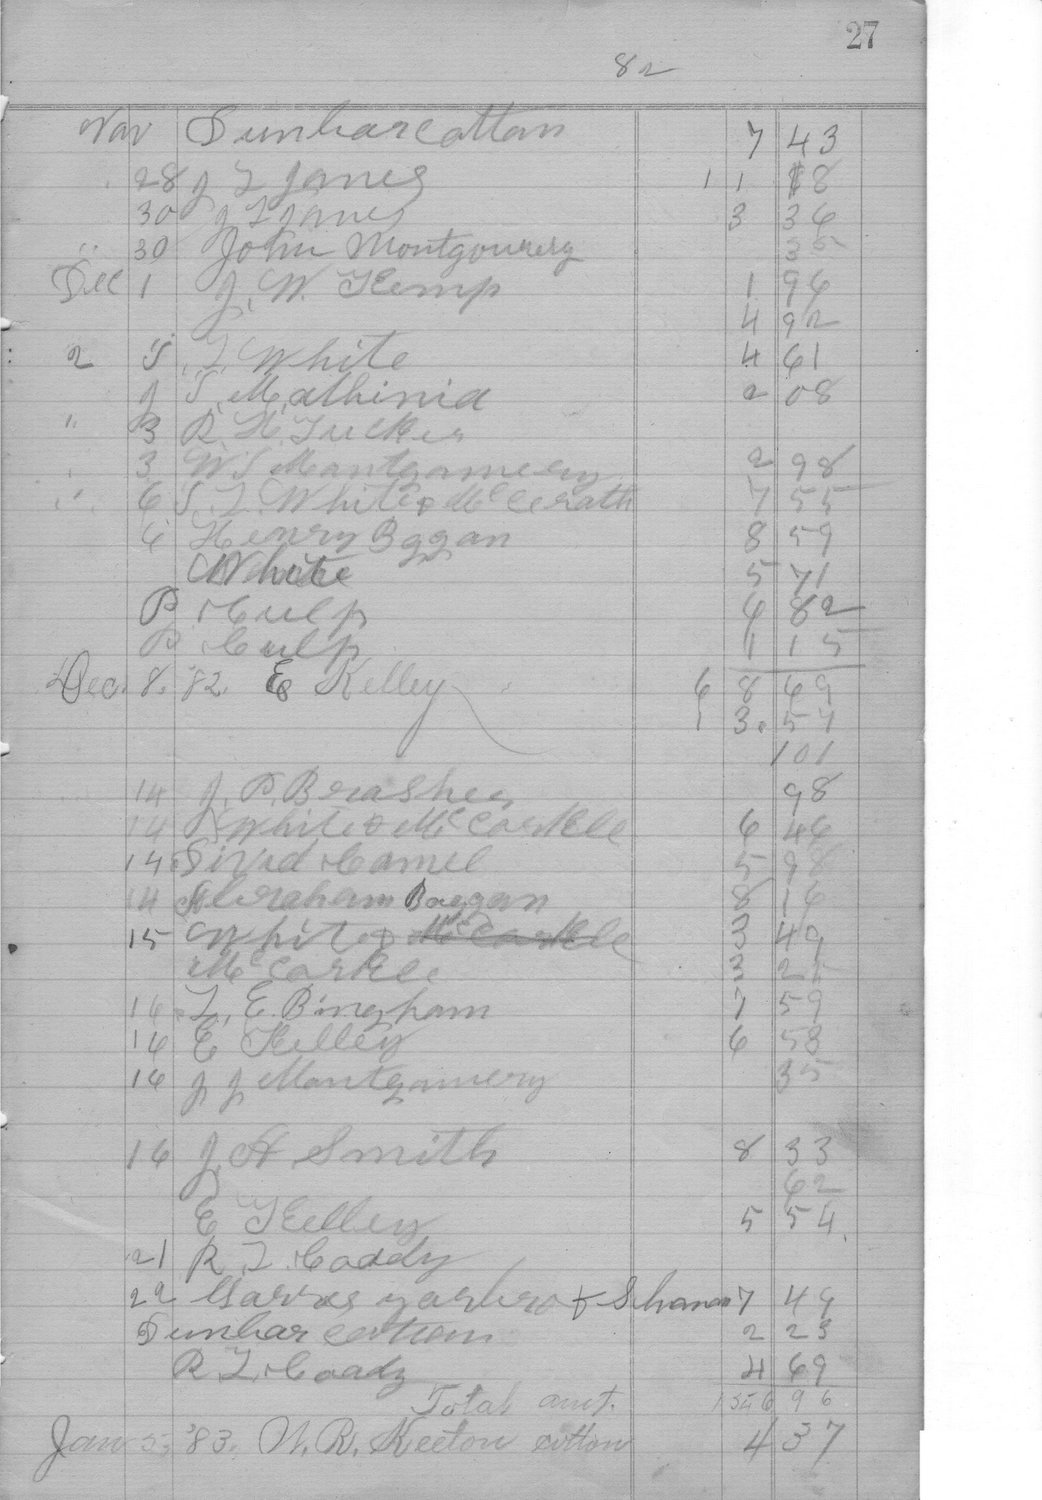 27
82
Nov Dunbar cottan 7 43
28 J L Janes 11 18
30 J L Janes 3 36
" 30 John Montgomery 35
Dec 1 J. W. Kemp 1 96
4 92
2 S. L. White 4 61
J S. Mathinia 2 08
" 3 R. H. Tucker
3 W S Mantgamery 2 98
" 6 S. L. White & McCerath 7 55
6 Henry Bggan 8 59
White 5 71
P. Culp 6 82
P Culp 1 15
Dec. 8. '82. E Kelley 6 8 69
1 3. 57
101
14 J. P. Brasher 98
14 White & McCorkle 6 46
14 Camel 5 98
14 Abraham Boggan 8 16
15 White & McCorkle 3 49
McCorkle 3 25
16 L. E. Bingham 7 59
16 E Kelley 6 53
16 J J Mantgamery 35
16 J. A Smith 8 33
62
E Kelley 5 54
21 R. L. Coddy
22 yarbro & 7 49
Dunbar cottom 2 23
R. L. Coady 4 69
Total amt. 156 96
Jan 5, '83. W. R. Keeton cotton 4 37